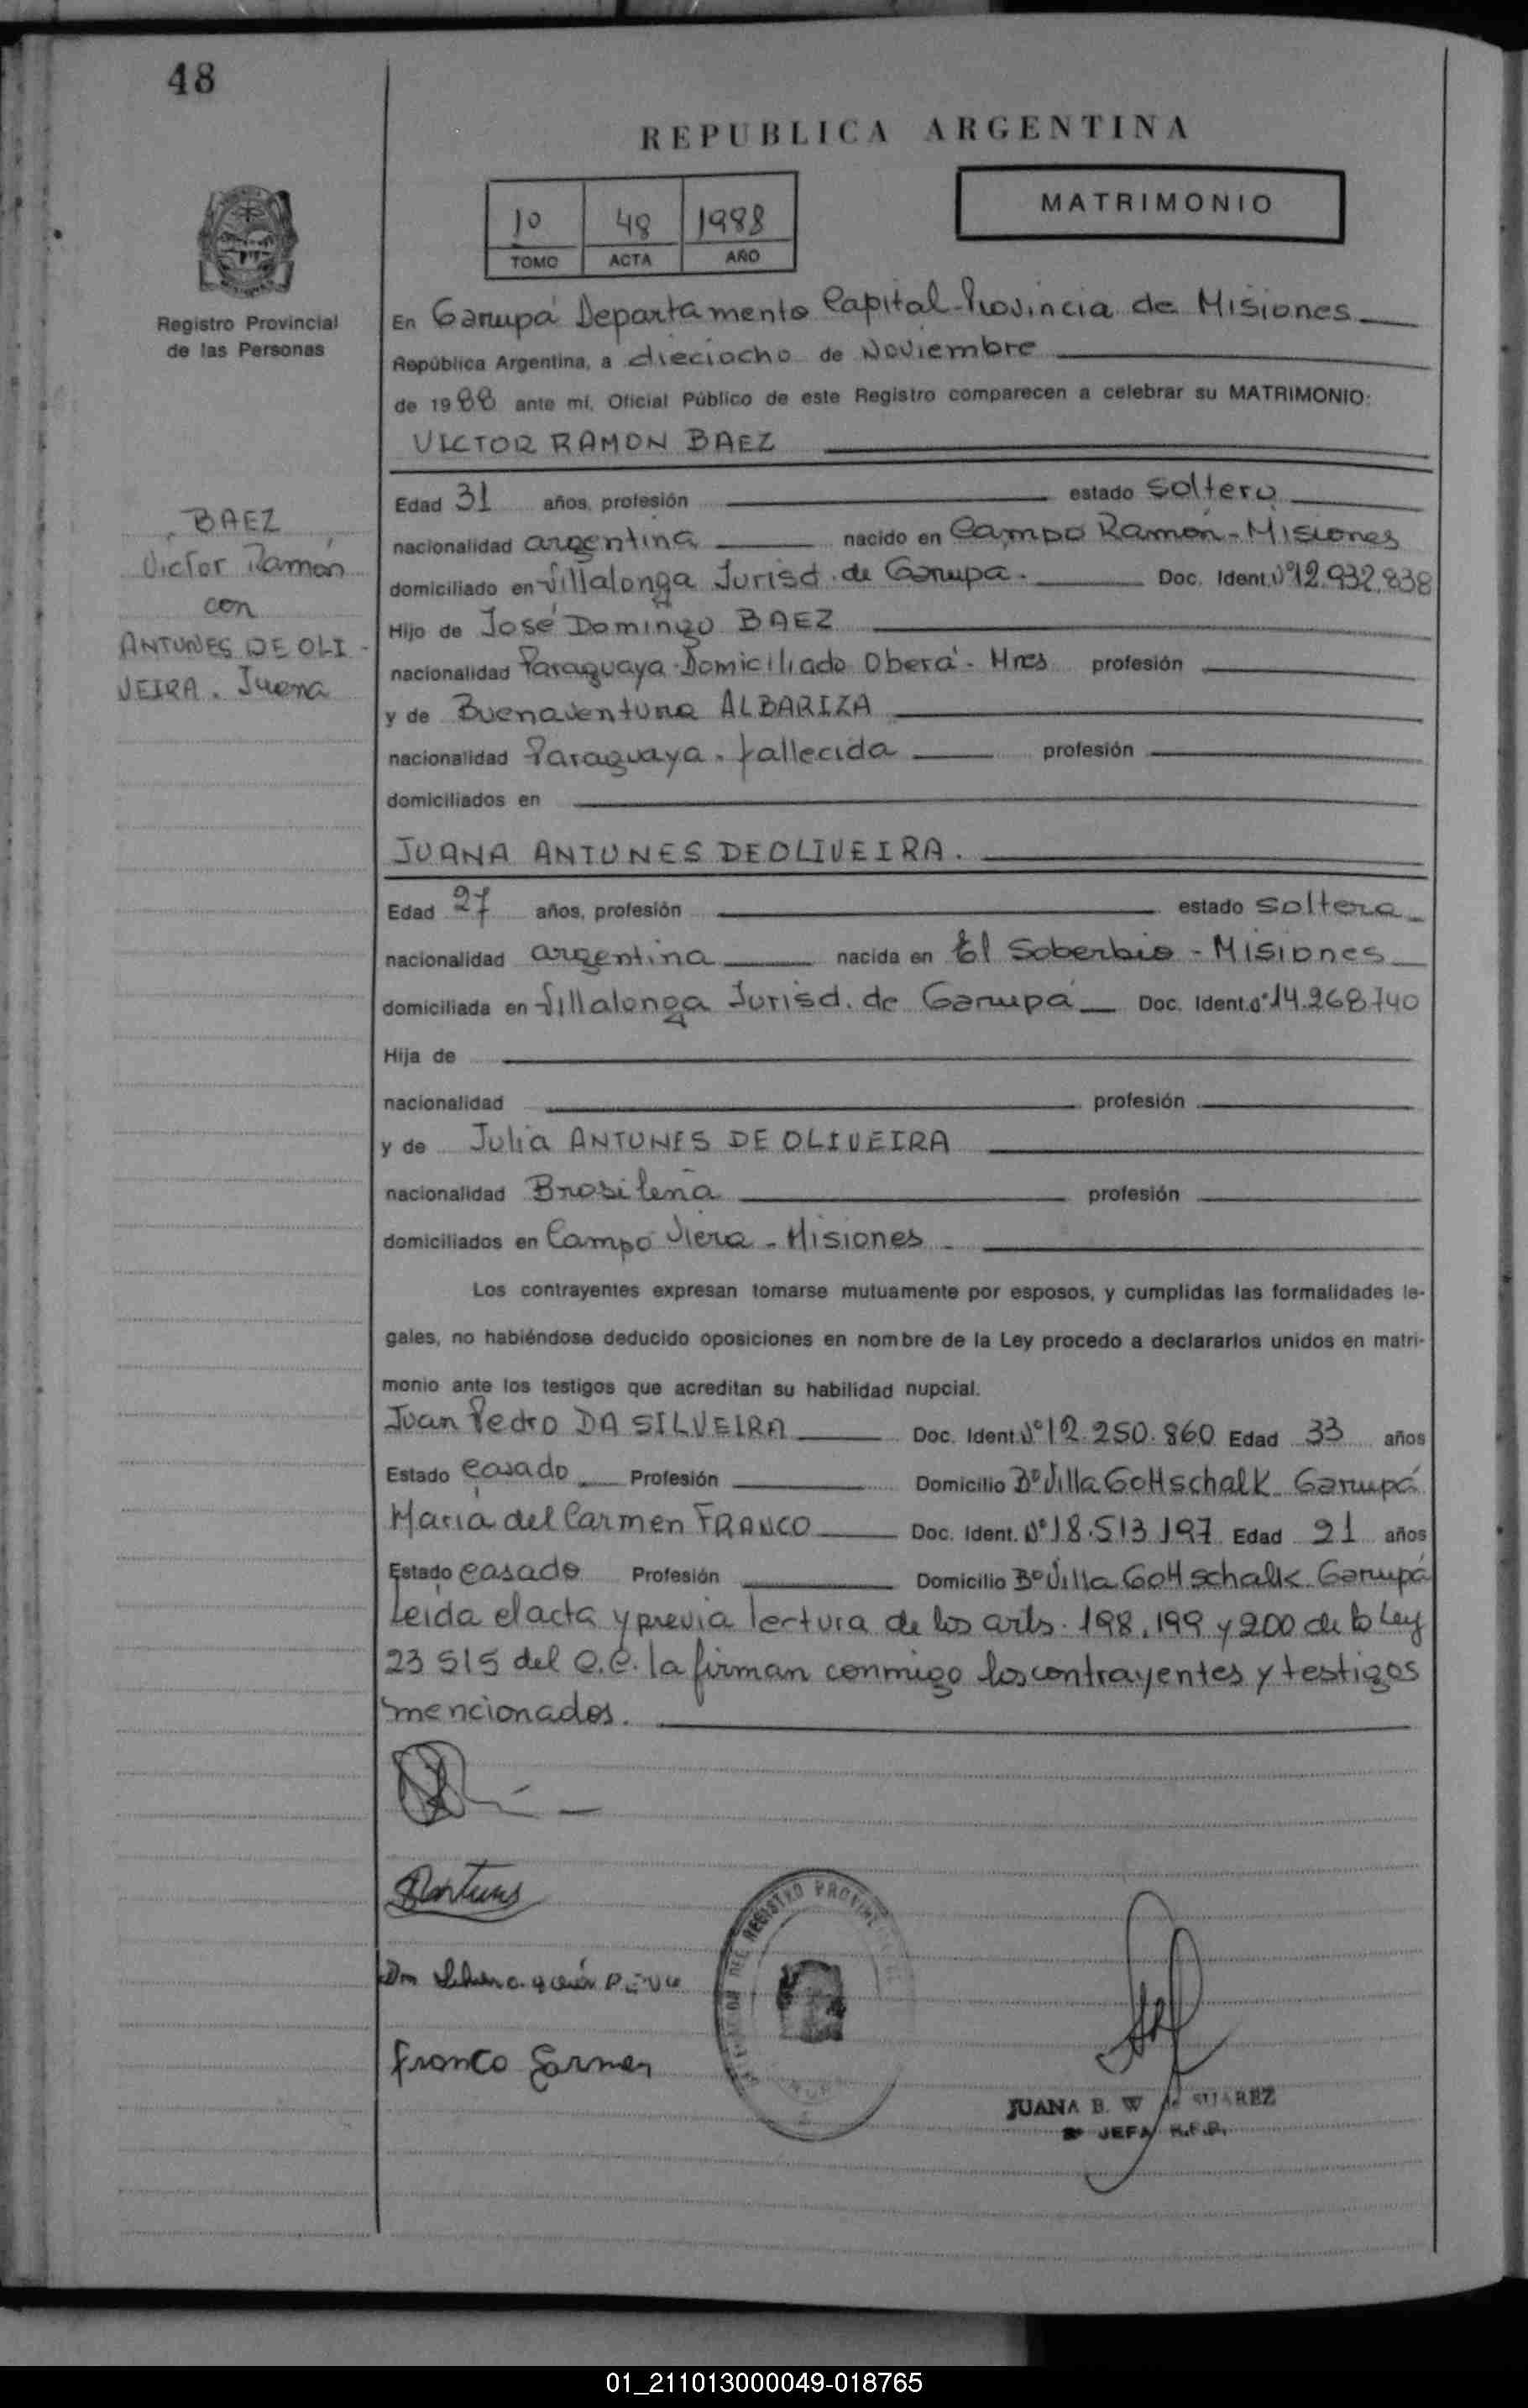 48
REPUBLICA ARGENTINA
10 48 1988
TOMO ACTA AÑO
MATRIMONIO
Registro Provincial
de las Personas
BAEZ
Victor Ramón
con
ANTUNES DE OLI-
VEIRA. Juana
En Garupá Departamento Capital-Provincia de Misiones
República Argentina, a dieciocho de Noviembre
de 1988 ante mí, Oficial Público de este Registro comparecen a celebrar su MATRIMONIO:
VICTOR RAMON BAEZ
Edad 31 años, profesión estado soltero
nacionalidad argentina nacido en Campo Ramón-Misiones
domiciliado en Villalonga Jurisd. de Garupa. Doc. Ident. Nº 12.932.838
Hijo de José Domingo BAEZ
nacionalidad Paraguaya-Domiciliado Oberá-Mnes profesión
y de Buenaventura ALBARIZA
nacionalidad Paraguaya. fallecida profesión
domiciliados en
JUANA ANTUNES DE OLIVEIRA.
Edad 27 años, profesión estado soltera
nacionalidad argentina nacida en El Soberbio - Misiones
domiciliada en Villalonga Jurisd. de Garupá Doc. Ident. Nº 14.268.740
Hija de
nacionalidad profesión
y de Julia ANTUNES DE OLIVEIRA
nacionalidad Brasileña profesión
domiciliados en Campo Viera - Misiones
Los contrayentes expresan tomarse mutuamente por esposos, y cumplidas las formalidades le-
gales, no habiéndose deducido oposiciones en nombre de la Ley procedo a declararlos unidos en matri-
monio ante los testigos que acreditan su habilidad nupcial.
Juan Pedro DA SILVEIRA Doc. Ident. Nº 12.250.860 Edad 33 años
Estado casado Profesión Domicilio Bº Villa Gottschalk Garupá
María del Carmen FRANCO Doc. Ident. Nº 18.513.197 Edad 21 años
Estado casado Profesión Domicilio Bº Villa Gottschalk Garupá
Leída el acta y previa lectura de los arts. 198, 199 y 200 de la Ley
23515 del C.C. la firman conmigo los contrayentes y testigos
mencionados.
Antunes
Franco Carmen
DEL REGISTRO PROVIN
JUANA B. W de SUAREZ
JEFA R.P.P.
01_211013000049-018765